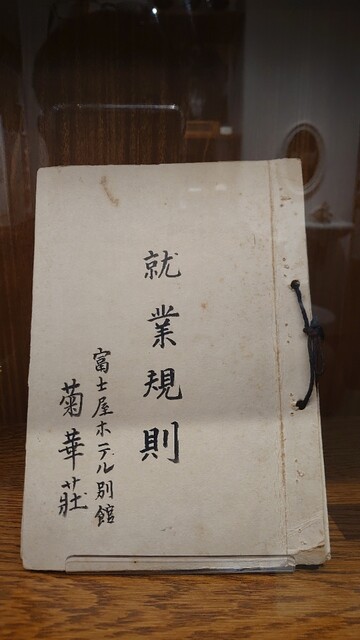 就業規則
富士屋ホテル別館
菊華荘